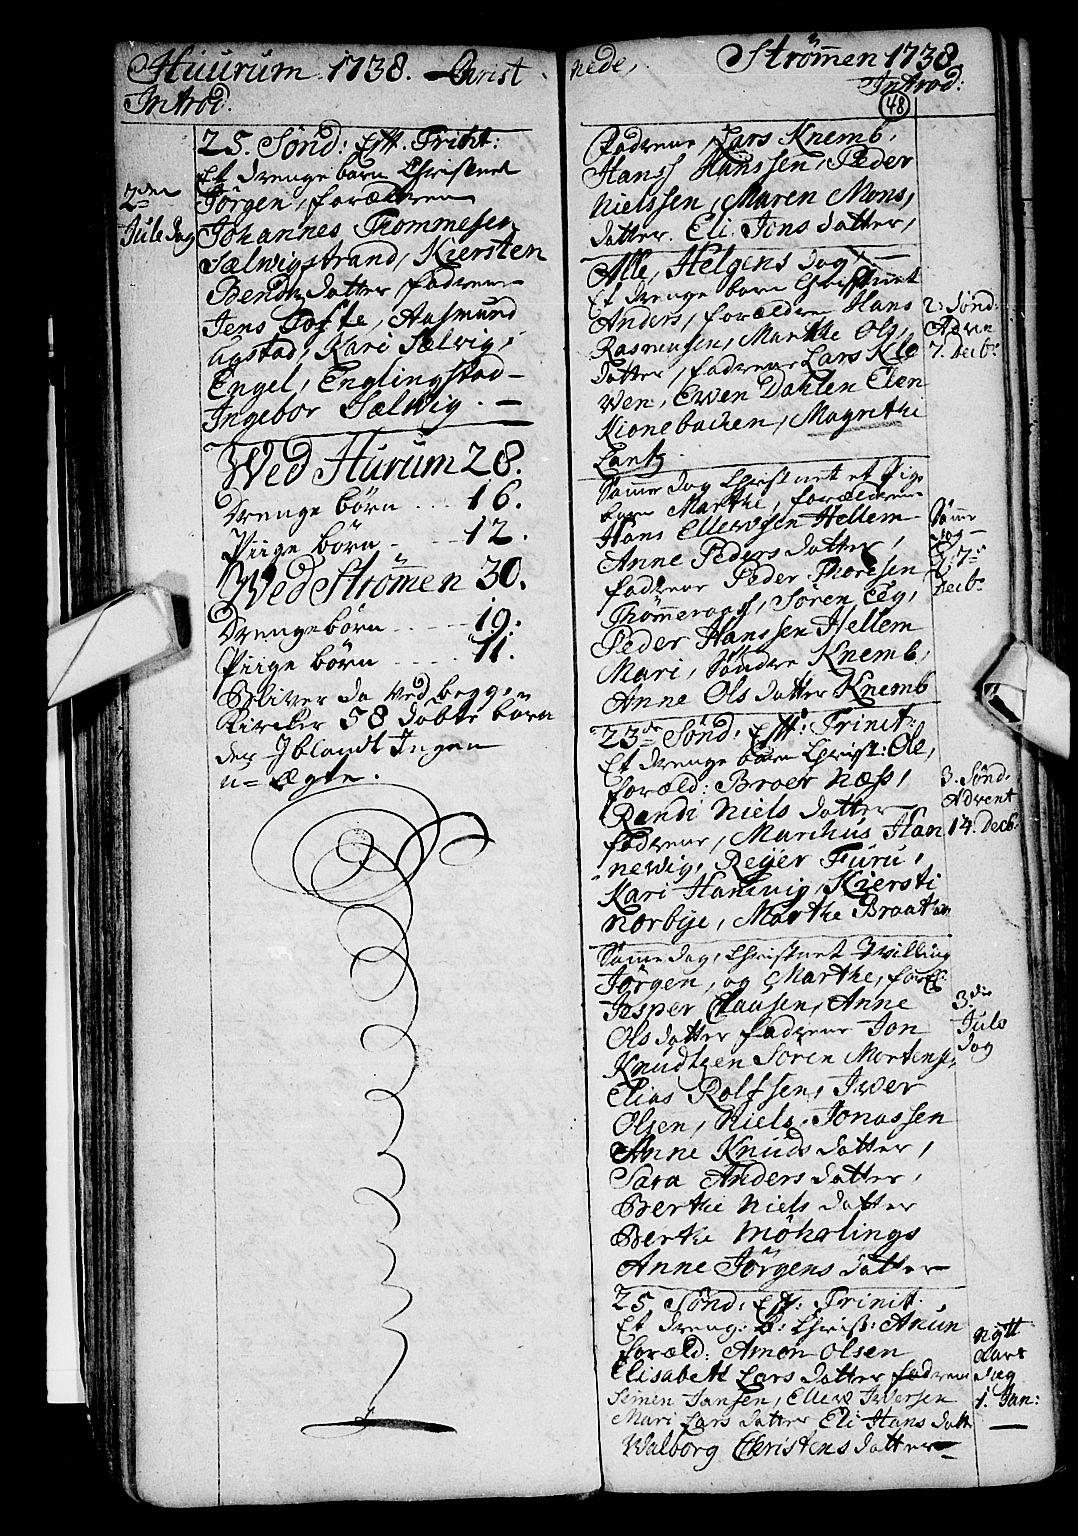 Huurum 1738. Christ
Introd.
25. Sønd: Eff. Trinit:
Et drenge barn Christnet
2den
Jule dag
Jörgen, forældren
Johannes Trommesen
Sælvigstrand, Kiersten
Bends datter fadrene
Jens Tofte, Aasmund
Kari Sælvig,
Engel, Englingstad
Ingebor Sælvig.
Wed Hurum 28.
Drenge börn .... 16.
Piige börn - .... 12.
Wed Strömen 30.
Drengebörn ..... 19.
Piige börn ..... 11.
Bliver da ved begge
Kircker 58 döbte börn
der Iblandt Ingen
u-Ægte.
nede, Strömen 1738
Introd:
48
Fadrene, Lars Knemb,
Hans Hanssen, Peder
Nielssen, Maren Mons
datter. Eli Jons datter,
Alle, Helgens dag,
Et drenge barn Christnet
Anders, forældren Hans
Rasmusen, Marthe Ols
datter, fadrene Lars Kle
ven, Even Dahlen Elen
Kionebacken, Magrethe
Lantz.
2. Sönd:
Adven
7. Decb:
Samme dag Christnet et Pige
barn Marthe, forældrene
Hans Ellevssen Hellem
Anne Peders datter,
fadrene Peder Thoresen
Thömmeraas, Sören Eeg,
Peder Hanssen Hellem
Mari, Söndre Knemb,
Anne Ols datter Knemb
Sömme
dag
d. 7de
Decb:
23de Sönd, Eff: Trinit:
Et drenge barn Christ: Ole,
foræld: Broer Næss,
Randi Niels datter
fadrene, Marchus Han
nevig, Reyer Furu,
Kari Hanevig, Kiersti
Norbye, Marthe Braaten
3. Sönd.
Advent
14. Decb:
Samme dag, Christnet Tvilling
Jörgen, og Marthe, foræl:
Jesper Clausen, Anne
Ols datter fadrene Jon
Knudtzen Sören Mortens,
Elias Rolfsen, Iver
Olsen, Niels Jonassen
Anne Knuds datter,
Sara Anders datter,
Berthe Niels datter
Berthe Möhrlings
Anne Jörgens datter
3die
Juls
dag
25. Sönd. Eff: Trinit:
Et dreng: B: Christ: Anun
foræld: Amon Olsen
Elisabeth Lars datter fadrene
Simen Jansen, Ellev Iversen
Mari Lars datter Eli Hans datt
Walborg Christens datter
Nytt
Aars
dag
1. Jan: